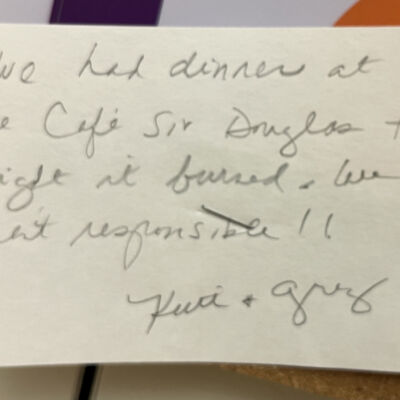 we had dinner at
e Café Sir Douglas t
ight it burned. We
en't responsible!!
+ Greg